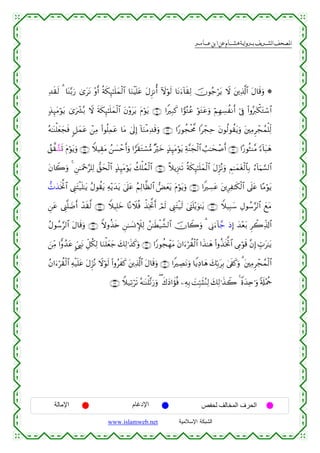 المصحف الشريف برواية هشام عن ابن عامر
۞ وَقَالَ ٱلَّذِينَ لَا يَرْجُونَ لِقَآءَنَا لَوْلَآ أُنزِلَ عَلَيْنَا ٱلْمَلَٰٓئِكَةُ أَوْ نَرَىٰ رَبَّنَا ۗ لَقَدِ
ٱسْتَكْبَرُوا۟ فِىٓ أَنفُسِهِمْ وَعَتَوْ عُتُوًّا كَبِيرًا ۝ يَوْمَ يَرَوْنَ ٱلْمَلَٰٓئِكَةَ لَا بُشْرَىٰ يَوْمَئِذٍ
لِّلْمُجْرِمِينَ وَيَقُولُونَ حِجْرًا مَّحْجُورًا ۝ وَقَدِمْنَآ إِلَىٰ مَا عَمِلُوا۟ مِنْ عَمَلٍ فَجَعَلْنَٰهُ
هَبَآءً مَّنثُورًا ۝ أَصْحَٰبُ ٱلْجَنَّةِ يَوْمَئِذٍ خَيْرٌ مُّسْتَقَرًّا وَأَحْسَنُ مَقِيلًا ۝ وَيَوْمَ تَشَّقَّقُ
ٱلسَّمَآءُ بِٱلْغَمَٰمِ وَنُزِّلَ ٱلْمَلَٰٓئِكَةُ تَنزِيلًا ۝ ٱلْمُلْكُ يَوْمَئِذٍ ٱلْحَقُّ لِلرَّحْمَٰنِ ۚ وَكَانَ
يَوْمًا عَلَى ٱلْكَٰفِرِينَ عَسِيرًا ۝ وَيَوْمَ يَعَضُّ ٱلظَّالِمُ عَلَىٰ يَدَيْهِ يَقُولُ يَٰلَيْتَنِى ٱتَّخَذتُّ
مَعَ ٱلرَّسُولِ سَبِيلًا ۝ يَٰوَيْلَتَىٰ لَيْتَنِى لَمْ أَتَّخِذْ فُلَانًا خَلِيلًا ۝ لَّقَدْ أَضَلَّنِى عَنِ
ٱلذِّكْرِ بَعْدَ إِذ جَّآءَنِى ۗ وَكَانَ ٱلشَّيْطَٰنُ لِلْإِنسَٰنِ خَذُولًا ۝ وَقَالَ ٱلرَّسُولُ
يَٰرَبِّ إِنَّ قَوْمِى ٱتَّخَذُوا۟ هَٰذَا ٱلْقُرْءَانَ مَهْجُورًا ۝ وَكَذَٰلِكَ جَعَلْنَا لِكُلِّ نَبِىٍّ عَدُوًّا مِّنَ
ٱلْمُجْرِمِينَ ۗ وَكَفَىٰ بِرَبِّكَ هَادِيًا وَنَصِيرًا ۝ وَقَالَ ٱلَّذِينَ كَفَرُوا۟ لَوْلَا نُزِّلَ عَلَيْهِ ٱلْقُرْءَانُ
جُمْلَةً وَٰحِدَةً ۚ كَذَٰلِكَ لِنُثَبِّتَ بِهِۦ فُؤَادَكَ ۖ وَرَتَّلْنَٰهُ تَرْتِيلًا ۝
الحرف المخالف لحفص الإدغام الإمالة
الشبكة الإسلامية www.islamweb.net